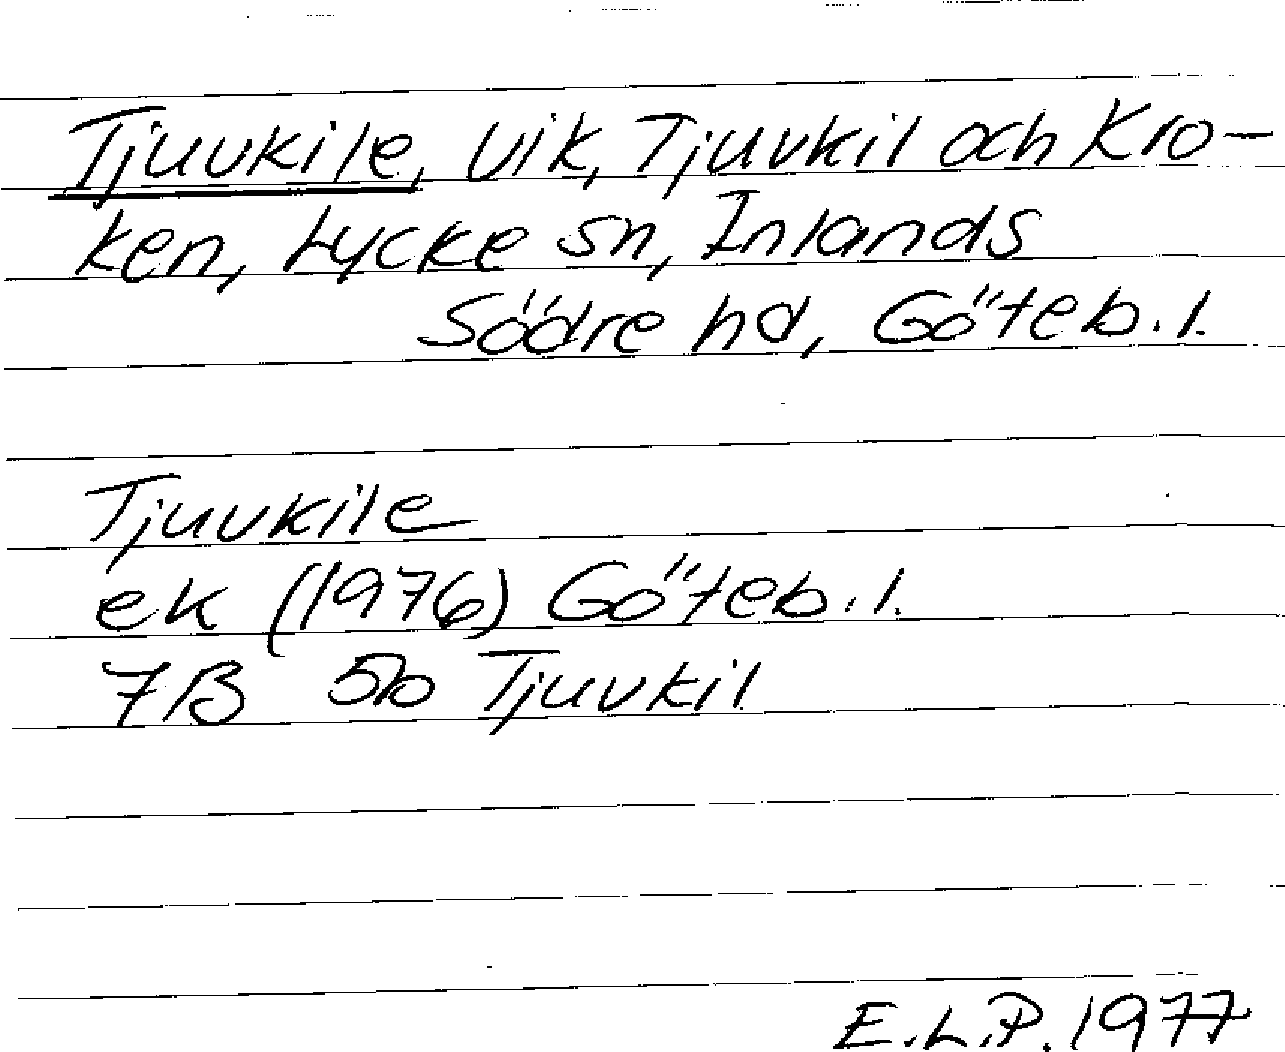 Tjuvkile, vik, Tjuvkil och Kro-
ken, Lycke sn, Inlands
Södre hd, Göteb. l.
Tjuvkile
ek (1976) Göteb. l.
7B 5b Tjuvkil
E.L.P. 1977